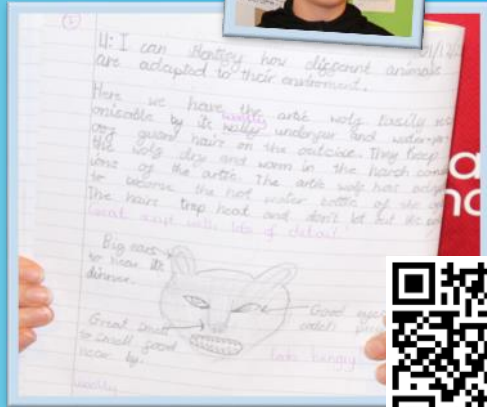 LI: I can identify how different animals
are adapted to their enviroment.
Here we have the artic wolf Easily rec
onisable by its wolly underfur and water-pr
oof guard hairs on the outside. They keep
the wolf dry and warm in the harsh cond
ions of the artic. The artic wolf has adap
to become the hot water bottle of the
The hairs trap heat and don't let out the
Great start with lots of detail!
Big ears
to hear its
dinner.
Good eyes
catch
Great
to smell food
near by.
Looks hungry
woolly